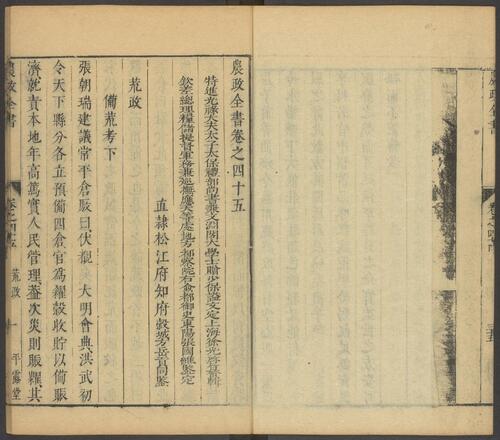 農政全書卷之四十五
特進光祿大夫太子太保禮部尚書兼文淵閣大學士贈少保謚文定上海徐光啓纂輯
欽差總理糧儲提督軍務兼巡撫應天等處地方都察院右僉都御史東陽張國維鑒定
直隸松江府知府穀城方岳貢同鑒
荒政
備荒考下
張朝瑞建議常平倉厫曰伏覩 大明會典洪武初
令天下縣分各立預備四倉官為糴穀收貯以備賑
濟就責本地年高篤實人民管理葢次災則賑糶其
農政全書 卷之四十五 荒政 一 平露堂